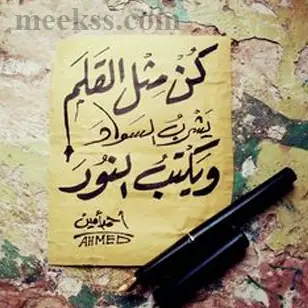 meekss.com
كُنْ مِثْلَ القَلَمِ
يَشْرَبُ السوادَ
وَيَكْتُبُ النُورَ
أحمد أمين
AHMED